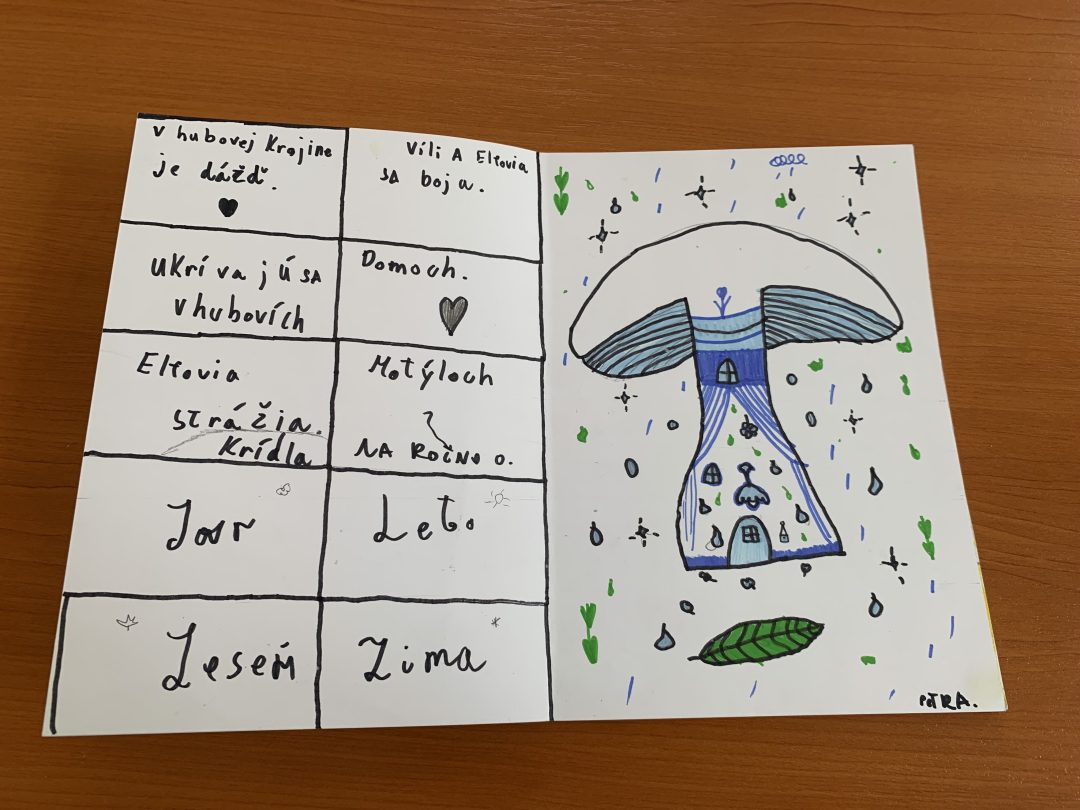 V hubovej Krajine
je dážď.
Víli A Elfovia
SA boja.
UKrívajÚ SA
v hubovích
Domoch.
Elfovia
strážia.
Krídla
Motýloch
NA ROČNO O.
Jar
Leto
Jeseň
Zima
PeTRA.